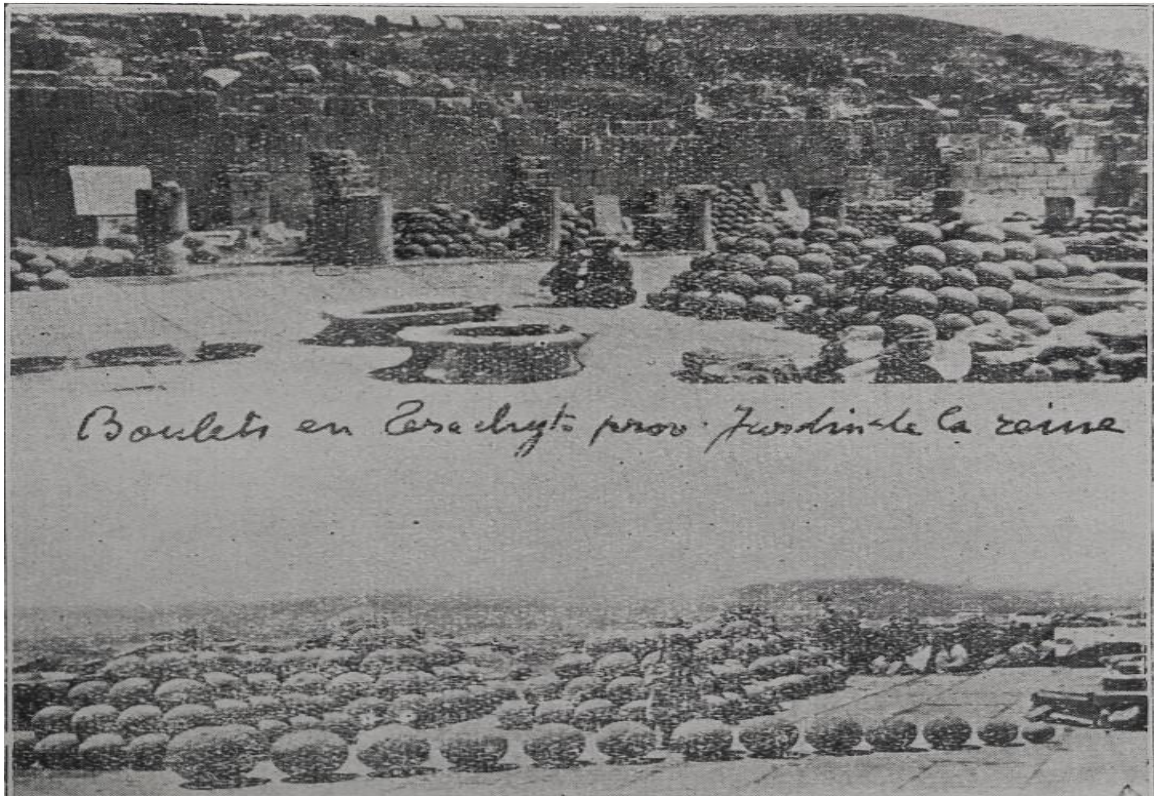 Boulets en Terachyts prov. Jurdin de la reine